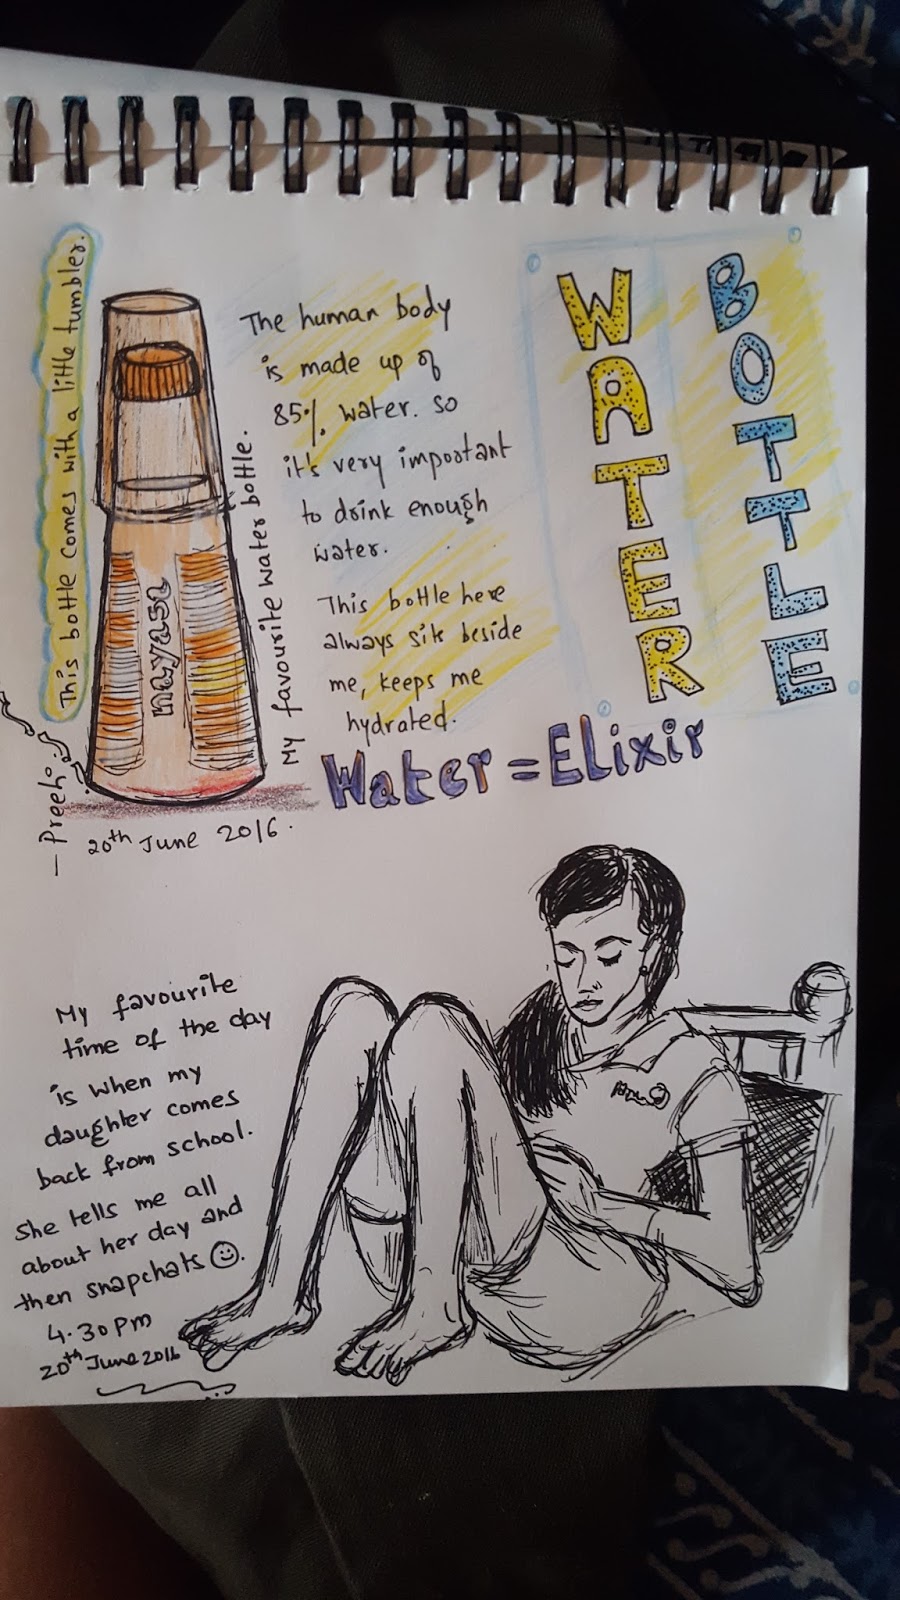 This bottle comes with a little tumbler.
nayasa
My favourite water bottle.
The human body
is made up of
85% water. so
it's very important
to drink enough
water.
This bottle here
always sits beside
me, keeps me
hydrated.
WATER
BOTTLE
Water = Elixir
20th June 2016.
My favourite
time of the day
is when my
daughter comes
back from school.
She tells me all
about her day and
then snapchats ☺.
4.30pm
20th June 2016